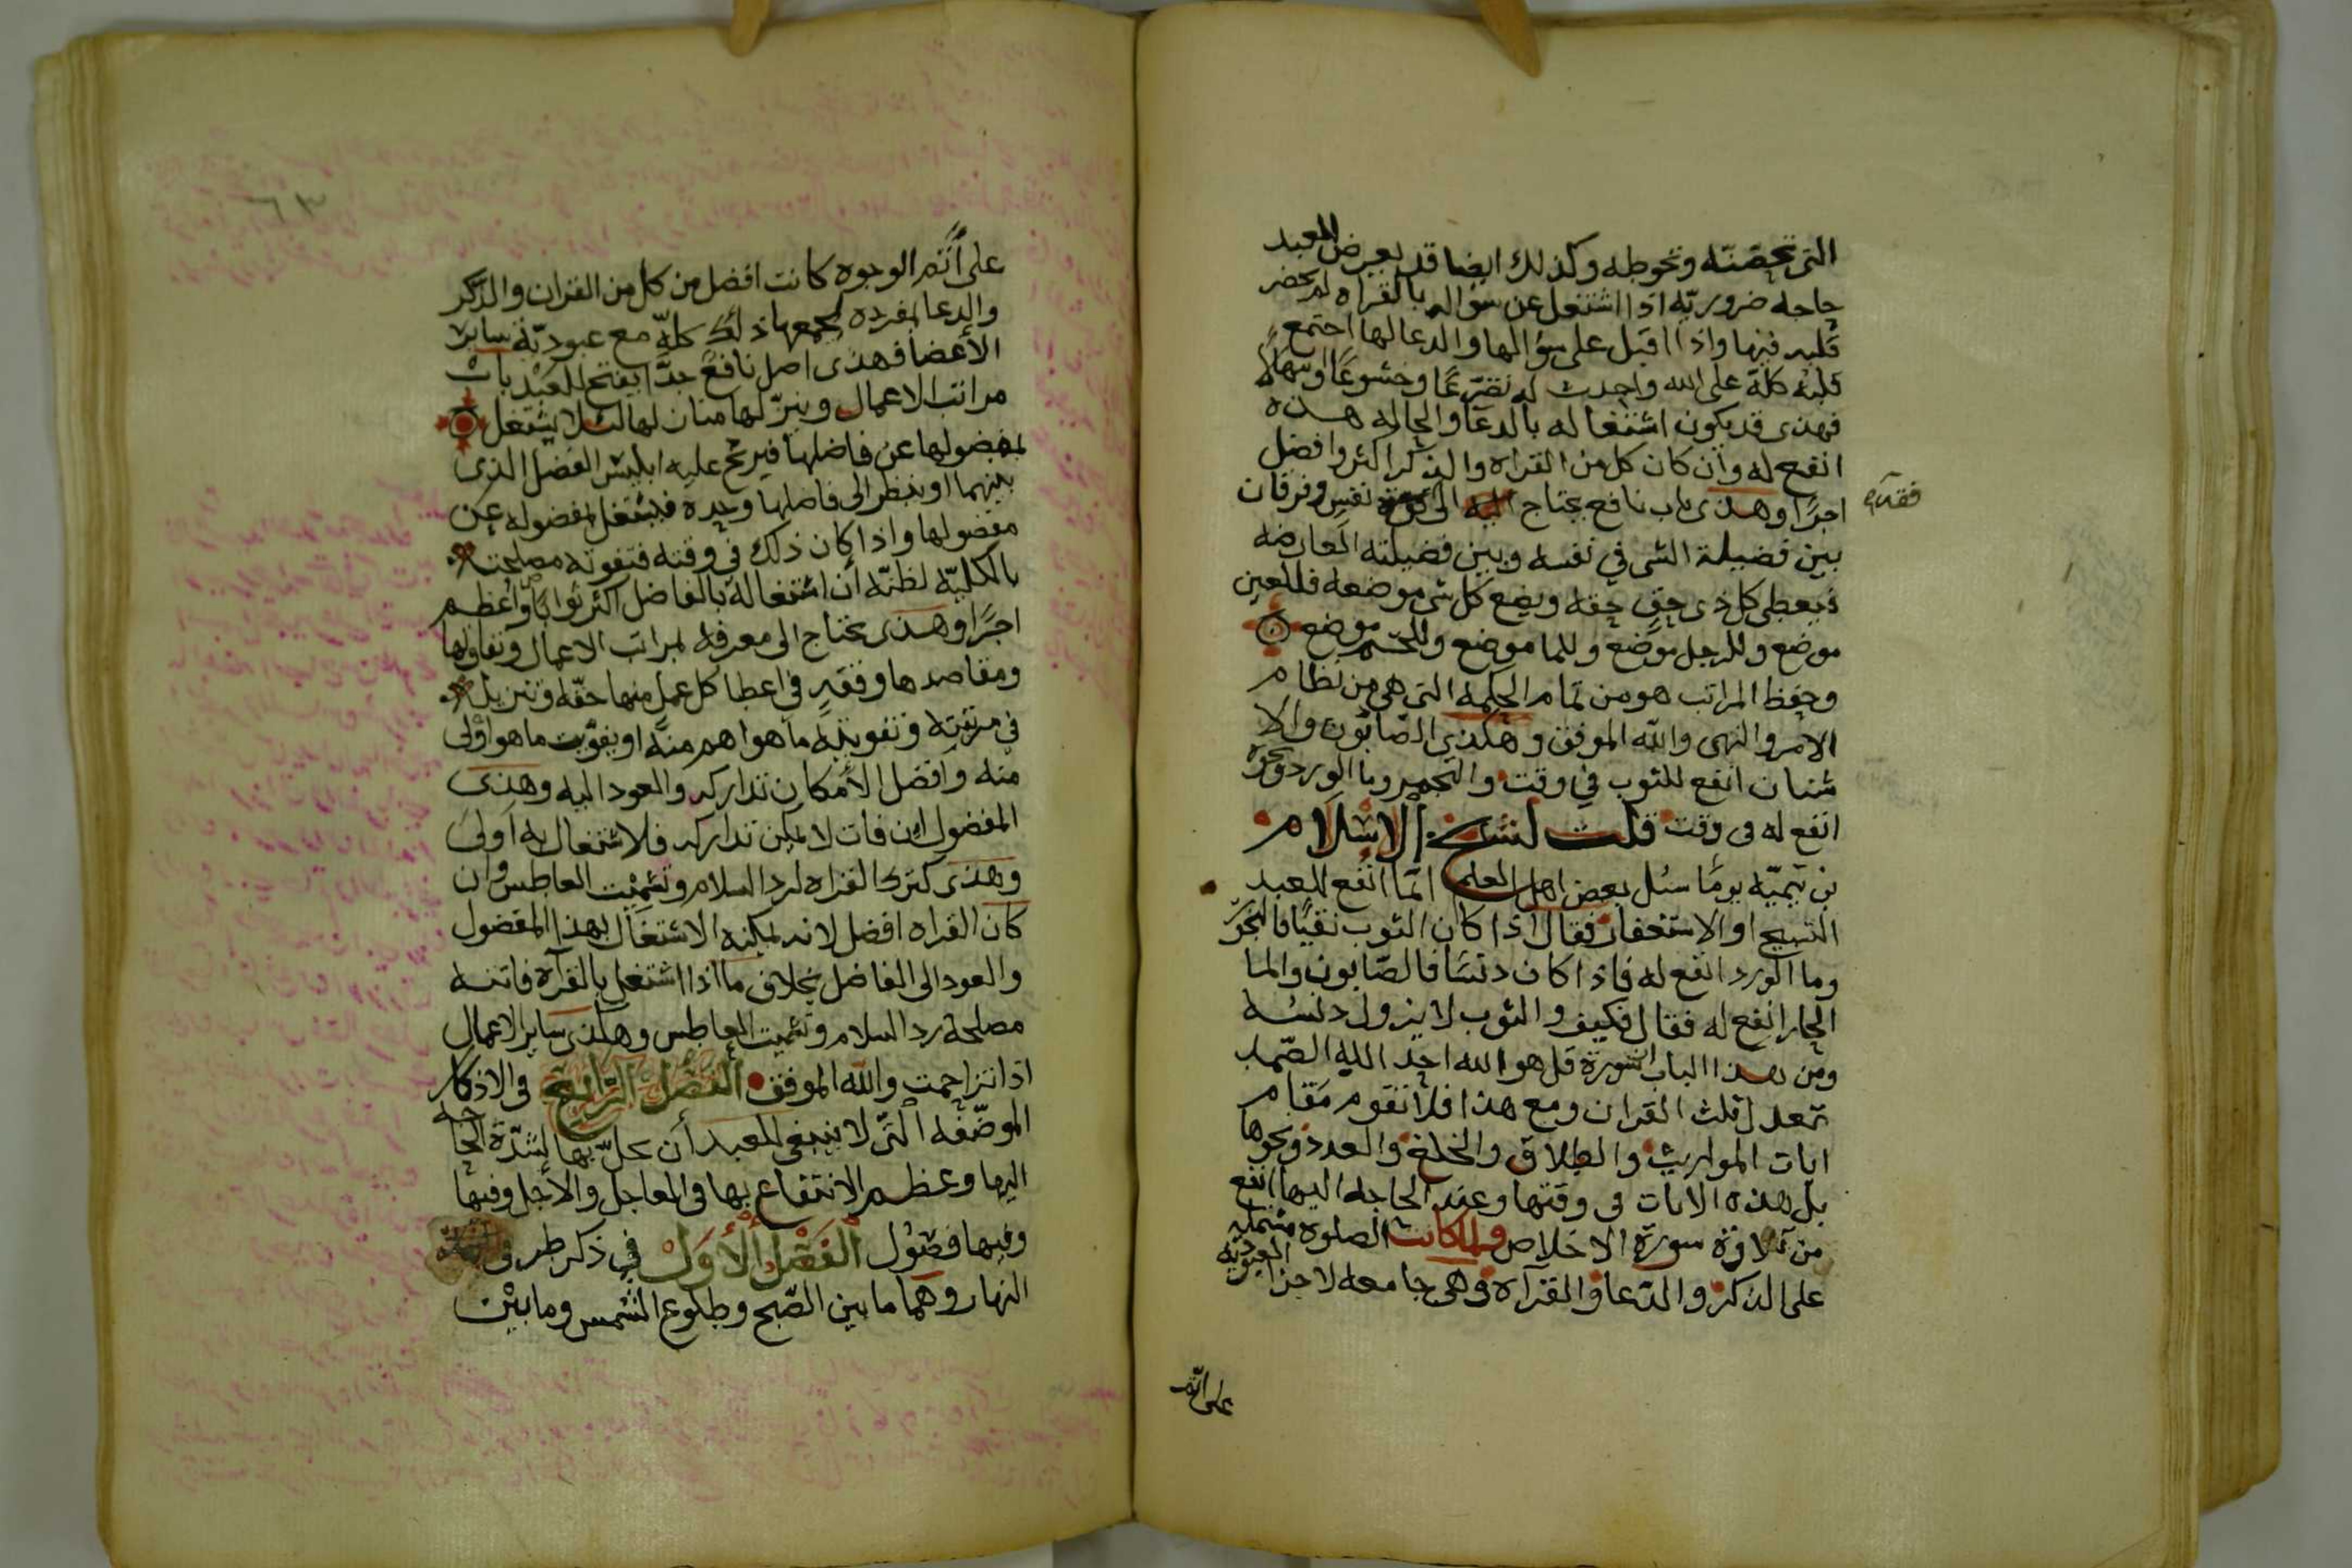 التى تحصنه وتحوطه وكذلك ايضا قد يعرض للعبد
حاجه ضروريّه اذا اشتغل عن سؤاله بالقراه لم يحضر
قلبه فيها واذا اقبل على سؤالها والدعا لها اجتمع
قلبه كله على الله واحدث له تضرّعًا وخشوعًا وابتهالًا
فهذى قد يكون اشتغاله بالدعا والحاله هذه
انفع له وان كان كل من القراه والذكر اكثر وافضل
اجرًا وهذى باب نافع يحتاج الى نفس وفرقان
فقه
بين فضيلة الشى في نفسه وبين فضيلته العارضه
فيعطى كل ذى حق حقه ويضع كل شى موضعه فللعين
موضع وللرجل موضع وللما موضع وللحم موضع
وحفظ المراتب هو من تمام الحكمه التى هى من نظام
الامر والنهى والله الموفق وهكذى الصّابون والا
شنان انفع للثوب في وقت والتجمير وما الورد ونحوه
انفع له فى وقت قلت لشيخ الاسْلَام
بن تيميّه يومًا سئل بعض اهل العلم ايّما انفع للعبد
التسبيح او الاستغفار فقال اذا كان الثوب نقيًا فالبخور
وما الورد انفع له فاذا كان دنسًا فالصّابون والما
الحار انفع له فقال فكيف والثوب لا يزول دنسُه
ومن هذا الباب ان سورة قل هو الله احد الله الصّمد
تعدل ثلث القران ومع هذا فلا تقوم مَقَام
ايات المواريث والطلاق والخلع والعدد ونحوها
بل هذه الايات فى وقتها وعند الحاجه اليها انفع
من تلاوة سورة الاخلاص ولما كانت الصلوه مشتمله
على الذكر والدّعا والقرآه وهى جامعه لاجزا العبوديّه
على اتم
٦٣
على أتَمّ الوجوه كانت افضل من كل من القران والذّكر
والدعا بمفرده لجمعها ذلك كلّه مع عبوديّة ساير
الأعضا فهذى اصل نافعٌ جدًّا يفتح للعَبْد باب
مراتب الاعمال وينزّلها منازلها لئلا يشتغل
بمفضولها عن فاضلها فيربح عليه ابليس الفضل الذى
بينهما او ينظر الى فاضلها وحده فيشتغل بمفضوله عن
مفضولها واذا كان ذلك فى وقته فتفوته مصلحته
بالكليّه لظنّه ان اشتغاله بالفاضل اكثر ثوابًا وأعْظم
اجرًا وهذى يحتاج الى معرفه بمراتب الاعمال وتفاوتها
ومقاصدها وفقهٍ فى اعطا كل عمل منها حقّه وتنزيله
في مرتبته وتفويته لما هو اهم منه او يفوّت ما هو اوْلى
منه وافضل الأمكان تداركه والعود اليه وهذى
المفضول ان فات لا يمكن تداركه فلاشتغال به اَولى
وهذى كترك القراه لرد السلام وتشميت العاطس وان
كان القراه افضل لانه يمكنه الاشتغَال بهذا المفضول
والعود الى الفاضل بخلاف ما اذا اشتغل بالقرآه فاتته
مصلحة رد السلام وتشميت العاطس وهكذى ساير الاعمال
اذا تزاحمت والله الموفق الفصْل الرّابع فى الاذكار
الموضّفه التى لا ينبغى للعبد أن يخلّ بها لشدّة الحاجه
اليها وعظم الانتفاع بها فى العاجل والاجل وفيها
وفيها فصُول الفَصْل الأوّل في ذكر طرفى
النهار وهما ما بين الصّبح وطلوع الشمس وما بين